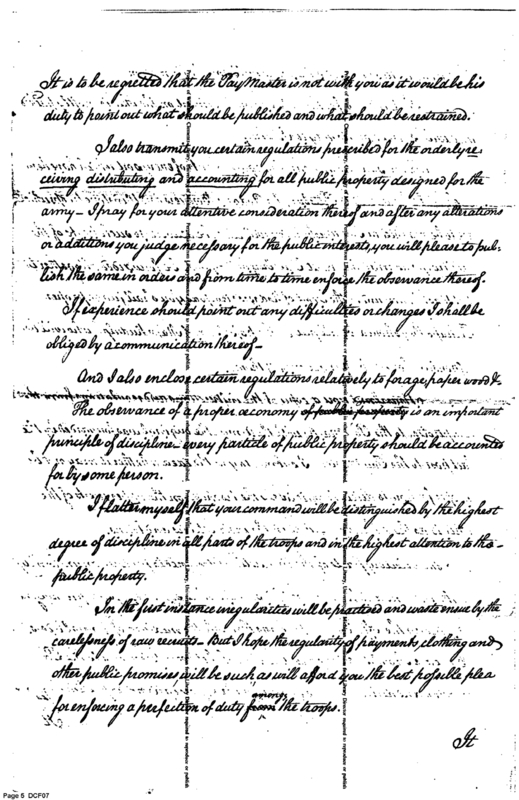 It is to be regretted that the Pay Master is not with you as it would be his
duty to point out what should be published and what should be restrained.
I also transmit you certain regulations prescribed for the orderly re=
ceiving distributing and accounting for all public property designed for the
army – I pray for your attentive consideration thereof and after any alterations
or additions you judge necessary for the public interests, you will please to pub-
lish the same in orders and from time to time enforce the observance thereof.
If experience should point out any difficulties or changes I shall be
obliged by a communication thereof –
And I also enclose certain regulations relatively to forage, paper wood &c
The observance of a proper œconomy of public property is an important
principle of discipline – every particle of public property should be accounted
for by some person.
I flatter myself that your command will be distinguished by the highest
degree of discipline in all parts of the troops and in the highest attention to the
public property.
In the first instance irregularities will be practised and waste ensue by the
carelessness of raw recruits – But I hope the regularity of payments, clothing and
other public promises will be such as will afford you the best possible plea
among
for enforcing a perfection of duty from the troops.
It
Page 5 DCF07